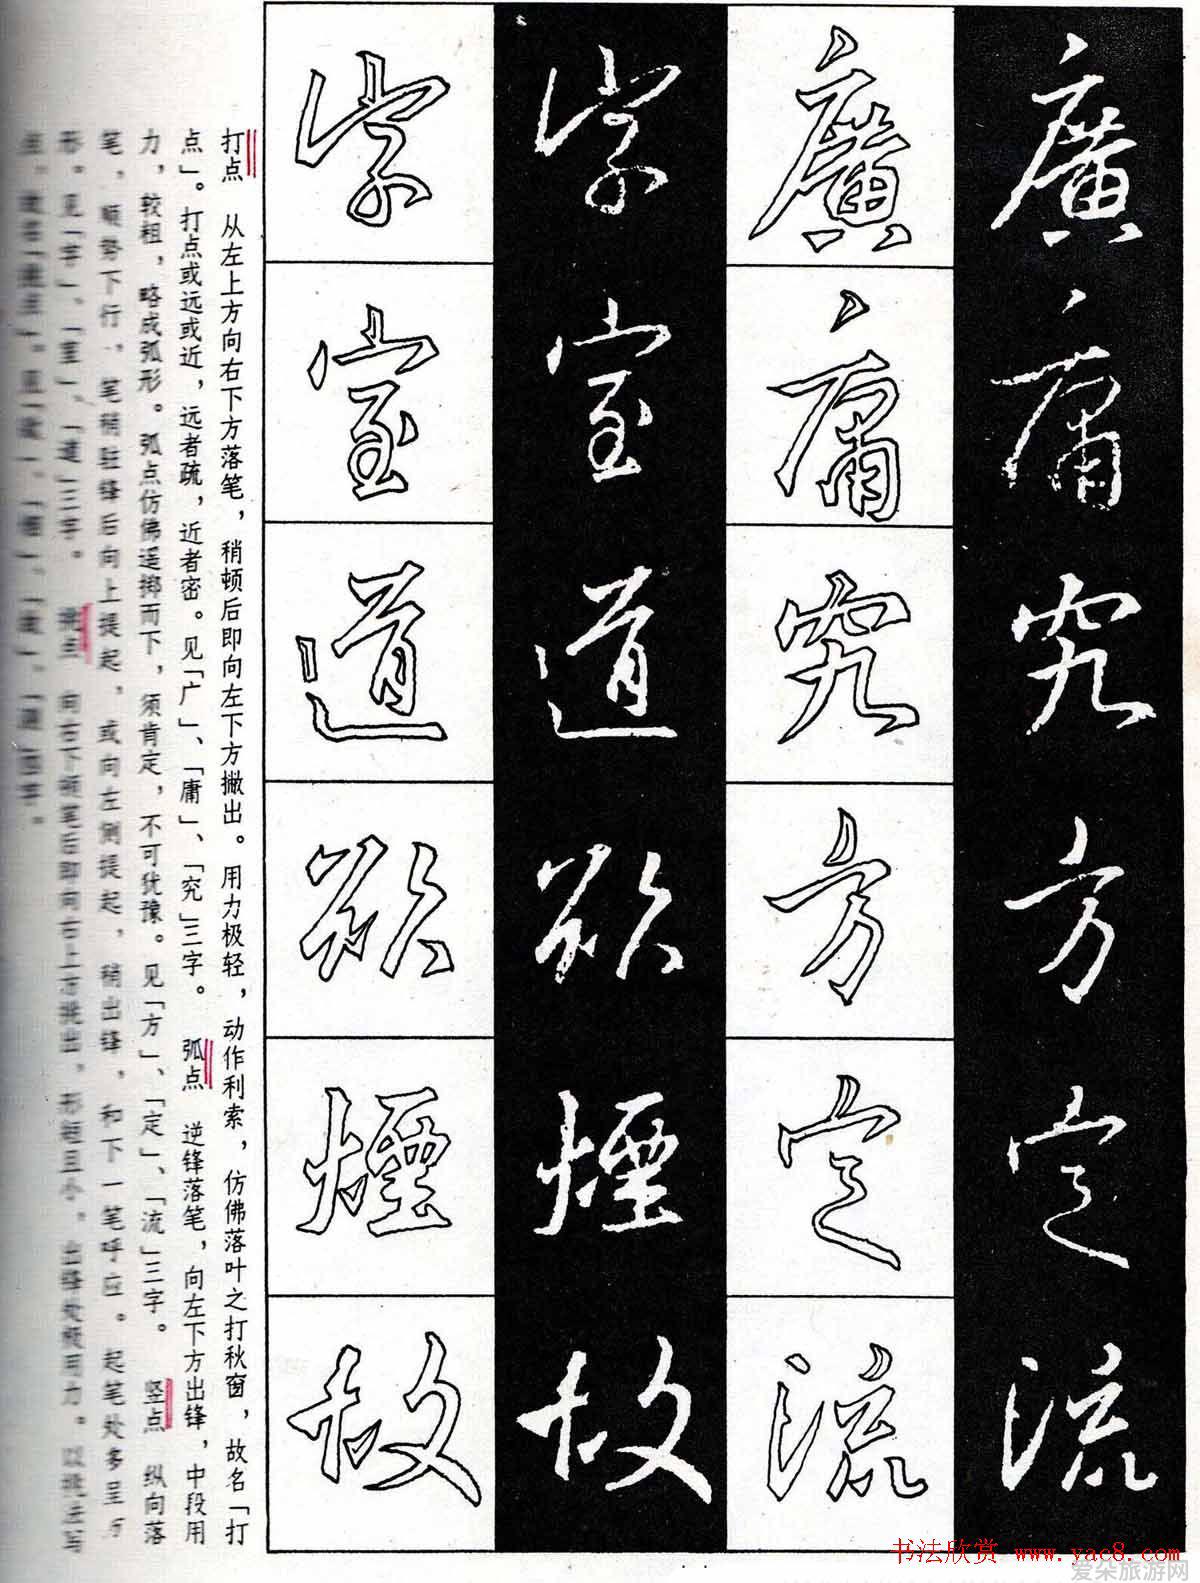 廣庸究方定流
廣庸究方定流
字室道欲煙故
字室道欲煙故
打点 从左上方向右下方落笔，稍顿后即向左下方撇出。用力极轻，动作利索，仿佛落叶之打秋窗，故名「打
点」。打点或远或近，远者疏，近者密。见「广」、「庸」、「究」三字。 弧点 逆锋落笔，向左下方出锋，中段用
力，较粗，略成弧形。弧点仿佛遥掷而下，须肯定，不可犹豫。见「方」、「定」、「流」三字。 竖点 纵向落
笔，顺势下行，笔稍驻锋后向上提起，或向左侧提起，稍出锋，和下一笔呼应。起笔处多呈方
形。见「字」、「室」、「道」三字。 挑点 向右下顿笔后即向右上方挑出，形短且小。出锋处极用力。以挑法写
点，故名「挑点」。见
书法欣赏 www.yac8.com
爱朵旅游网